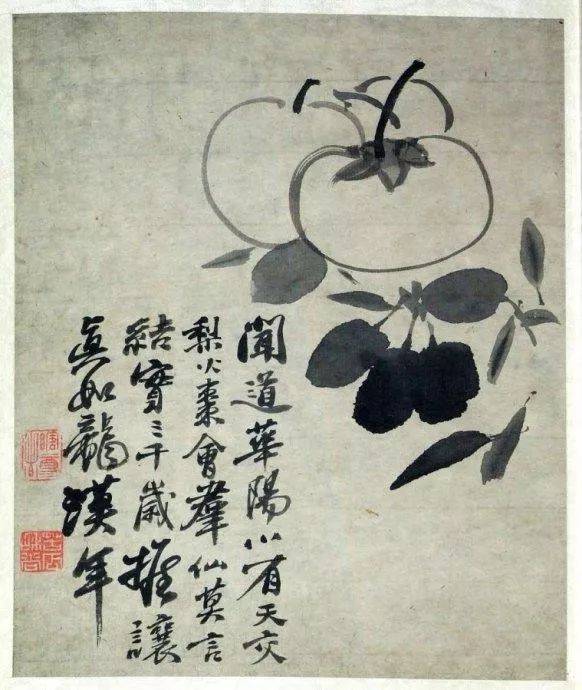 聞道華陽小有天交
梨火棗會羣仙莫言
結實三千歲推讓
真如龍漢年